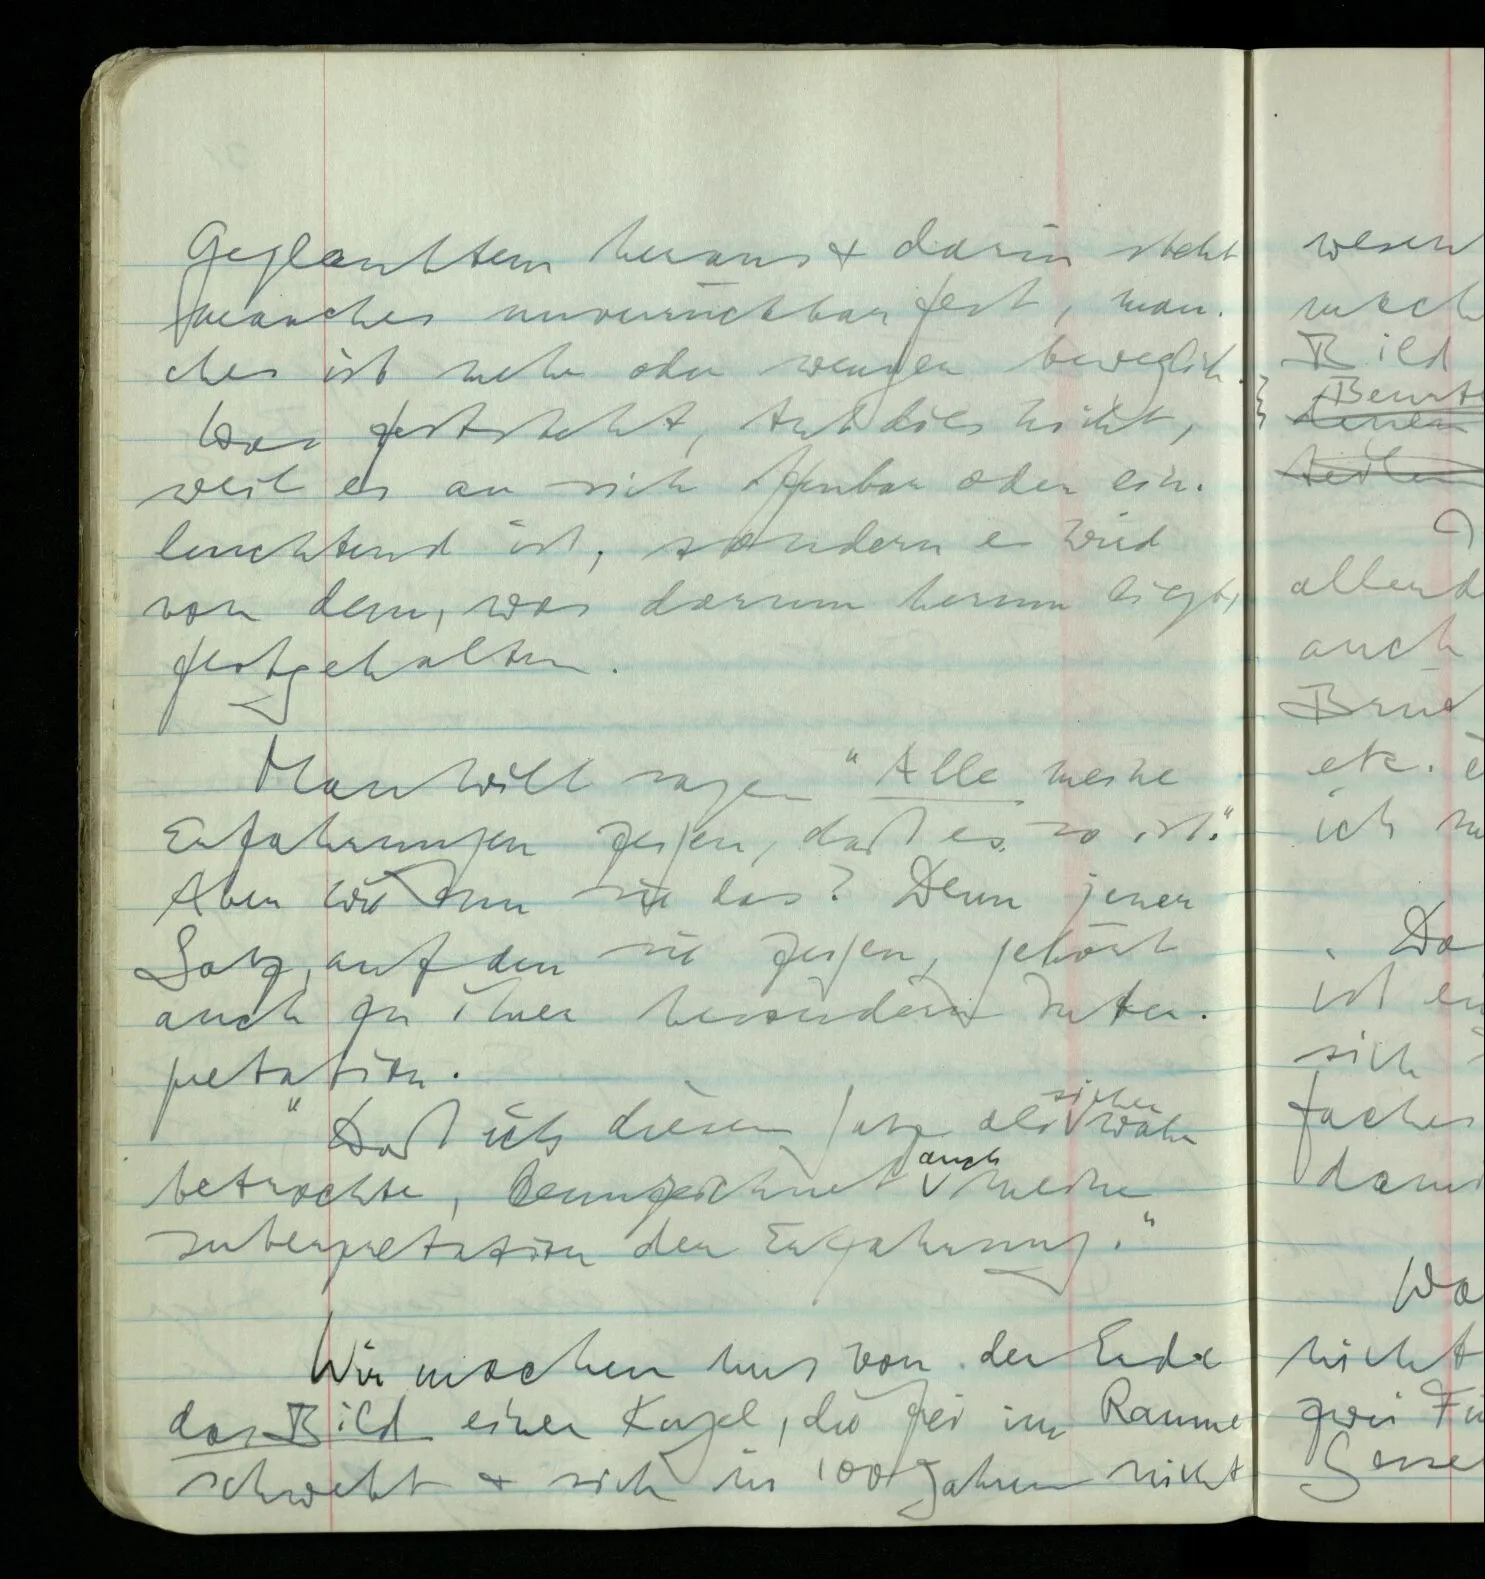 Geglaubtem heraus & darin steht
manches unverrückbar fest, man-
ches ist mehr oder weniger beweglich.
Was feststeht, tut dies nicht,
weil es an sich offenbar oder ein-
leuchtend ist, sondern es wird
von dem, was darum herum liegt,
festgehalten.
Man will sagen "Alle meine
Erfahrungen zeigen, daß es so ist."
Aber wie tun sie das? Denn jener
Satz, auf den sie zeigen, gehört
auch zu ihrer besondern Inter-
pretation.
"Daß ich diesen Satz als sicher wahr
betrachte, kennzeichnet auch meine
Interpretation der Erfahrung."
Wir machen uns von der Erde
das Bild einer Kugel, die frei im Raume
schwebt & sich in 100 Jahren nicht
wesen
Bild
allend
auch
etc.
ich
Da
ist
sich
faches
Wa
nicht
zwei